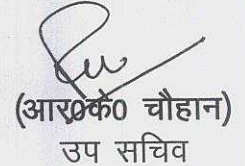 (आर0के0 चौहान)
उप सचिव